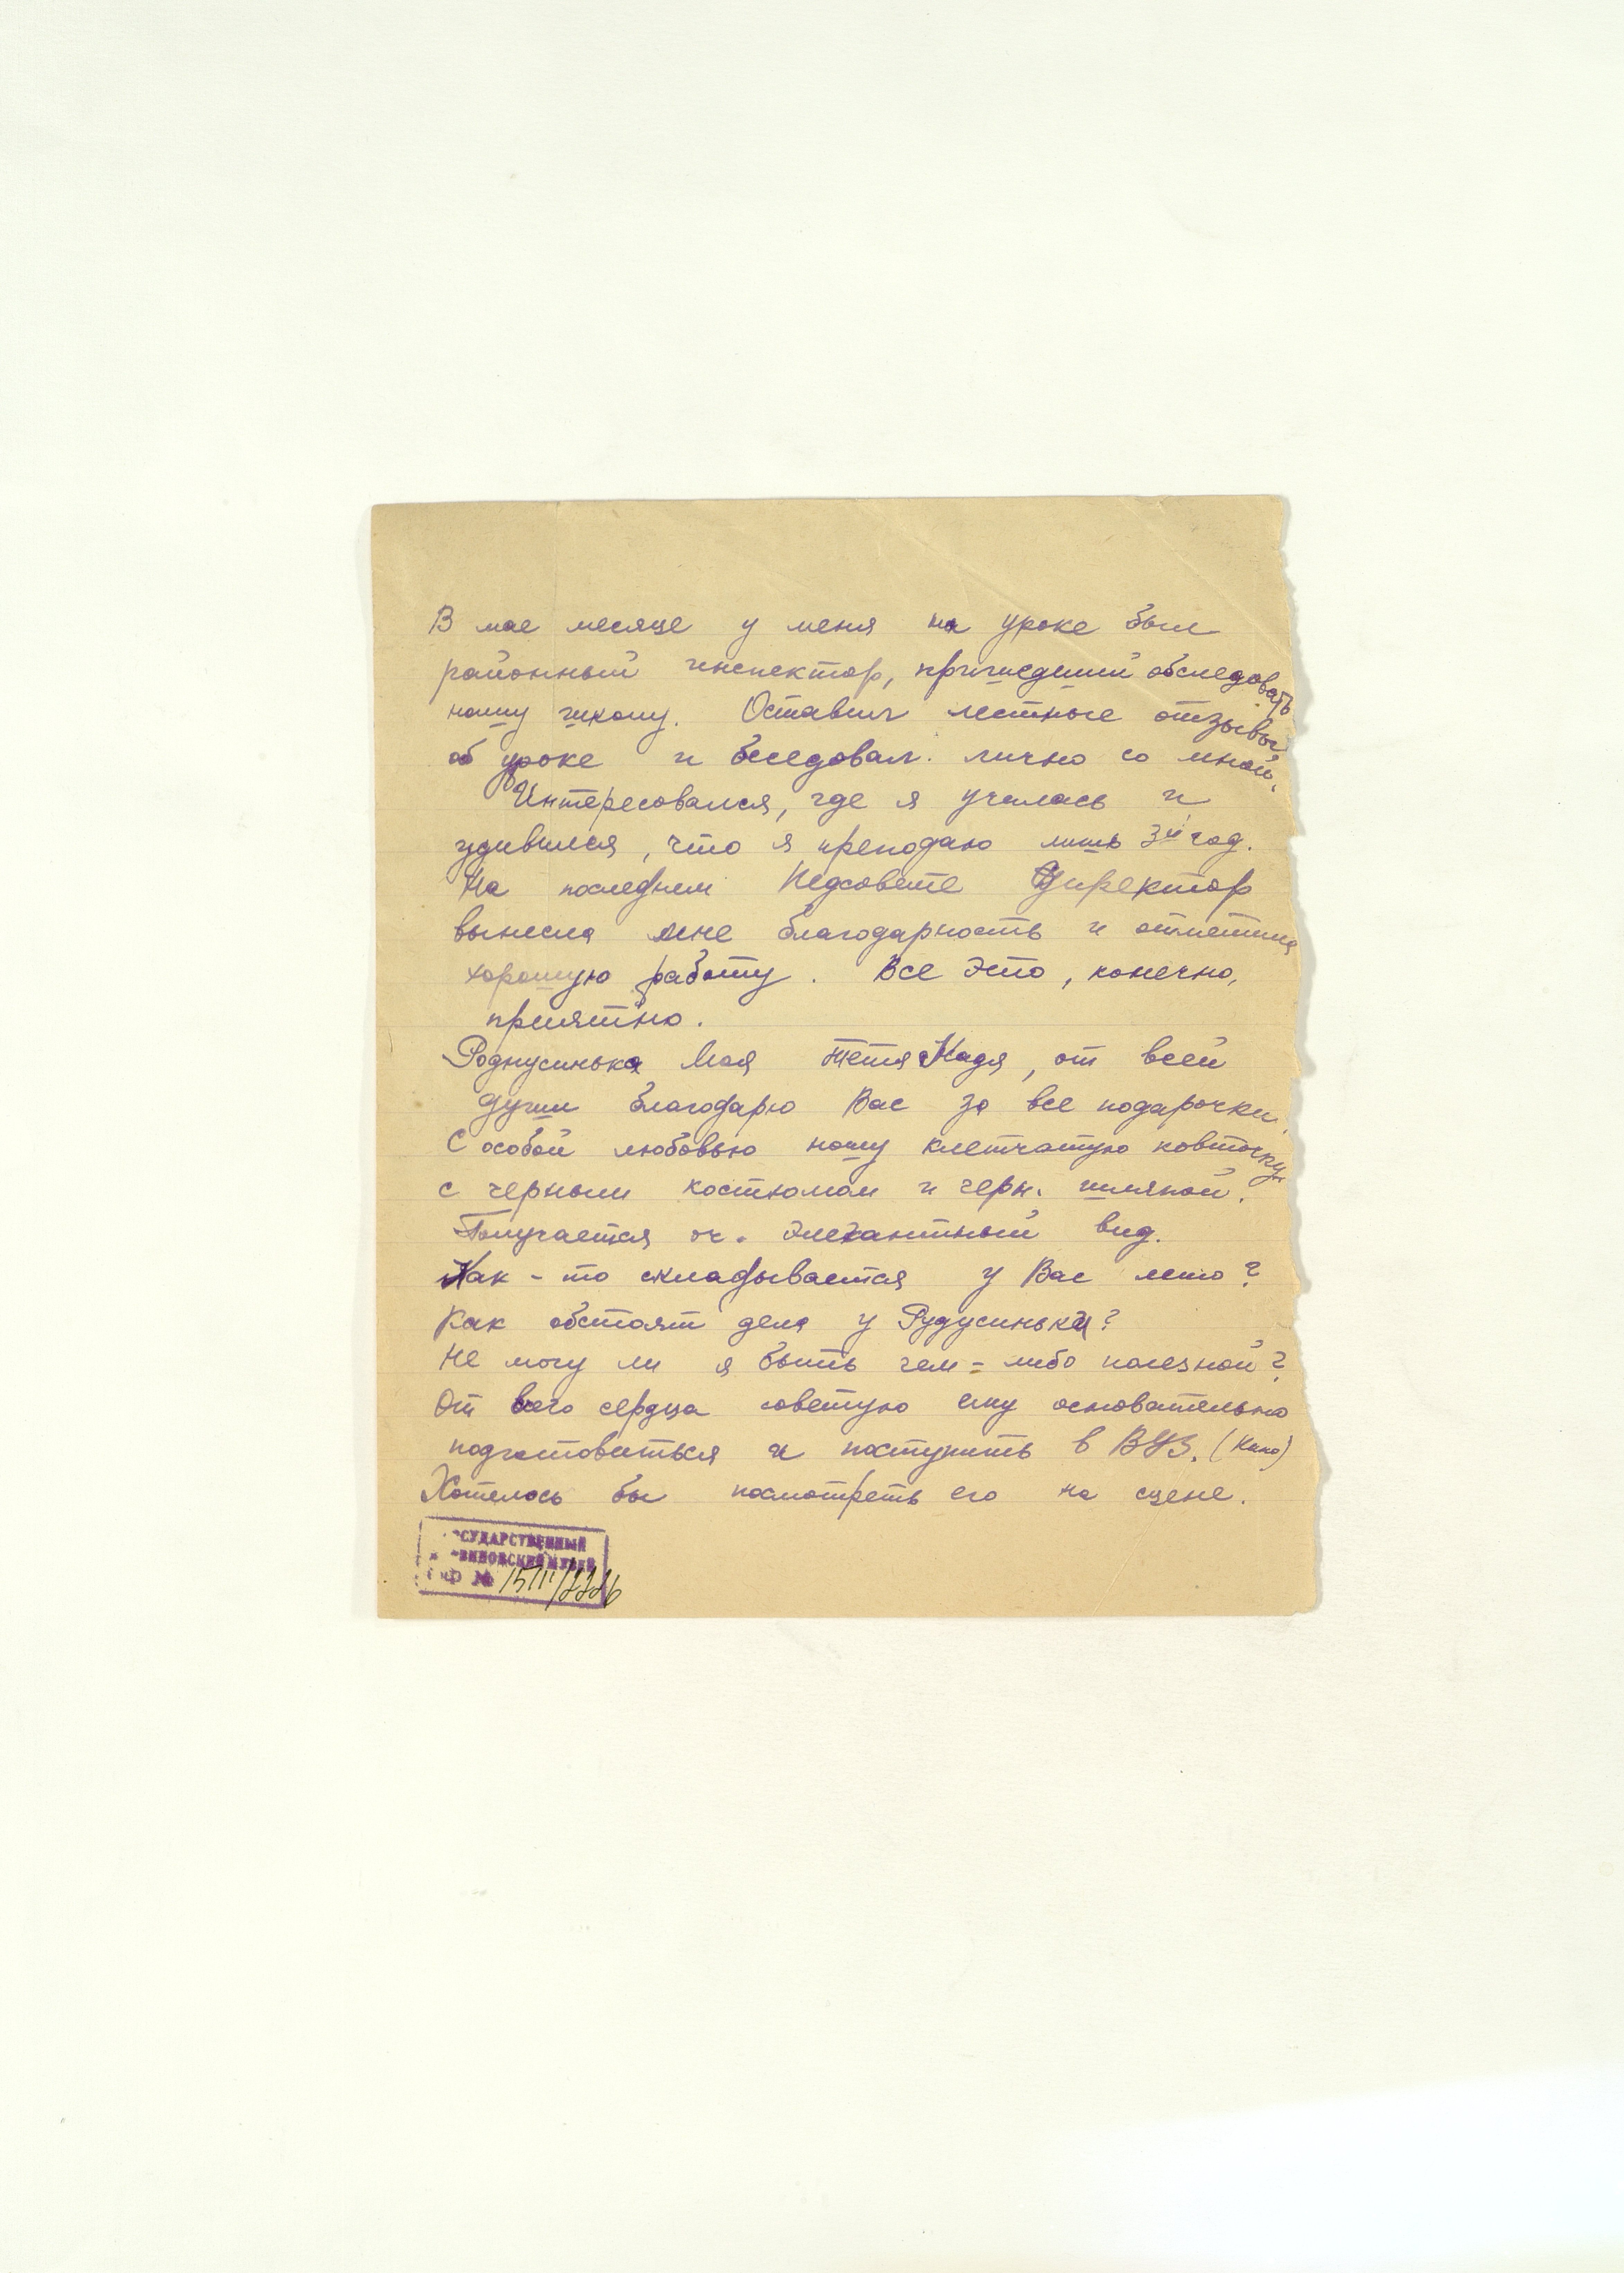 В мае месяце у меня на уроке был
районный инспектор, пришедший обследовать
нашу школу. Оставил лестные отзывы
об уроке и беседовал лично со мной.
Интересовался, где я училась и
удивился, что я преподаю лишь 3й год.
На последнем Педсовете Директор
вынесла мне благодарность и отметила
хорошую работу. Все это, конечно,
приятно.
Роднусинька Моя тетя Надя, от всей
души благодарю Вас за все подарочки.
С особой любовью ношу клетчатую ковточку
с черным костюмом и черн. шляпой.
Получается оч. элегантный вид.
Как-то складывается у Вас лето?
Как обстоят дела у Рудусиньки?
Не могу ли я быть чем-либо полезной?
От всего сердца советую ему основательно
подготовиться и поступить в ВУЗ. (Кино)
Хотелось бы посмотреть его на сцене.
ГОСУДАРСТВЕННЫЙ
МУЗЕЙ
№ 15111/